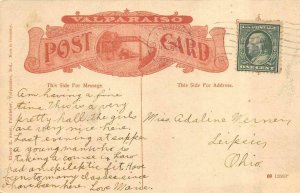 VALPARAISO
POST CARD
This Side For Message.
This Side For Address.
Am having a fine
time. This is a very
pretty hall. The girls
are very nice here.
Last evening at supper
a young man who is
taking a course in Law
had an epileptic fit. Have
been to many classes since
have been here. Love
Miss Adaline
Leipsic,
Ohio
ONE CENT